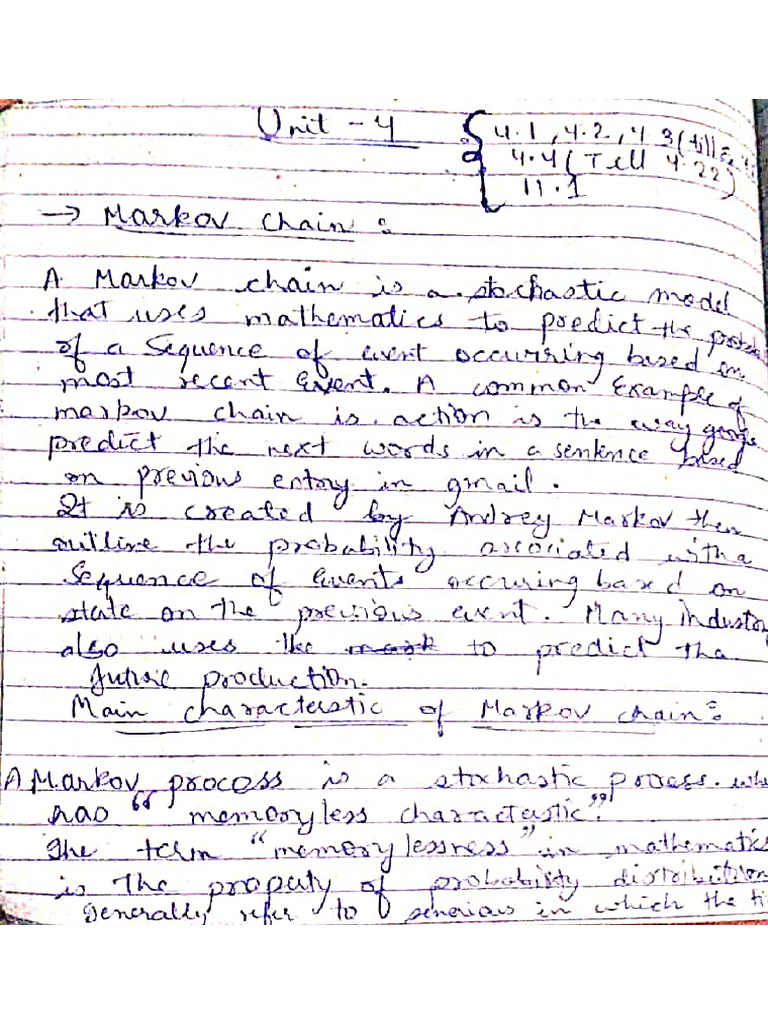 Unit - 4
4.1, 4.2, 4.3 (till
4.4 (Till 4.22)
11.1
→ Markov chain :
A Markov chain is a stochastic model
that uses mathematics to predict the
of a sequence of event occurring based on
most recent event. A common Example of
markov chain is action is the way google
predict the next words in a sentence based
on previous entry in gmail.
It is created by Andrey Markov then
outline the probability associated with a
Sequence of events occuring based on
state on the previous event. Many industry
also uses the to predict the
future production.
Main characteristic of Markov chain :
A Markov process is a stochastic process.
has "memoryless characteristic".
The term "memorylessness" in mathematics
is the property of probability distribution
Generally refer to in which the